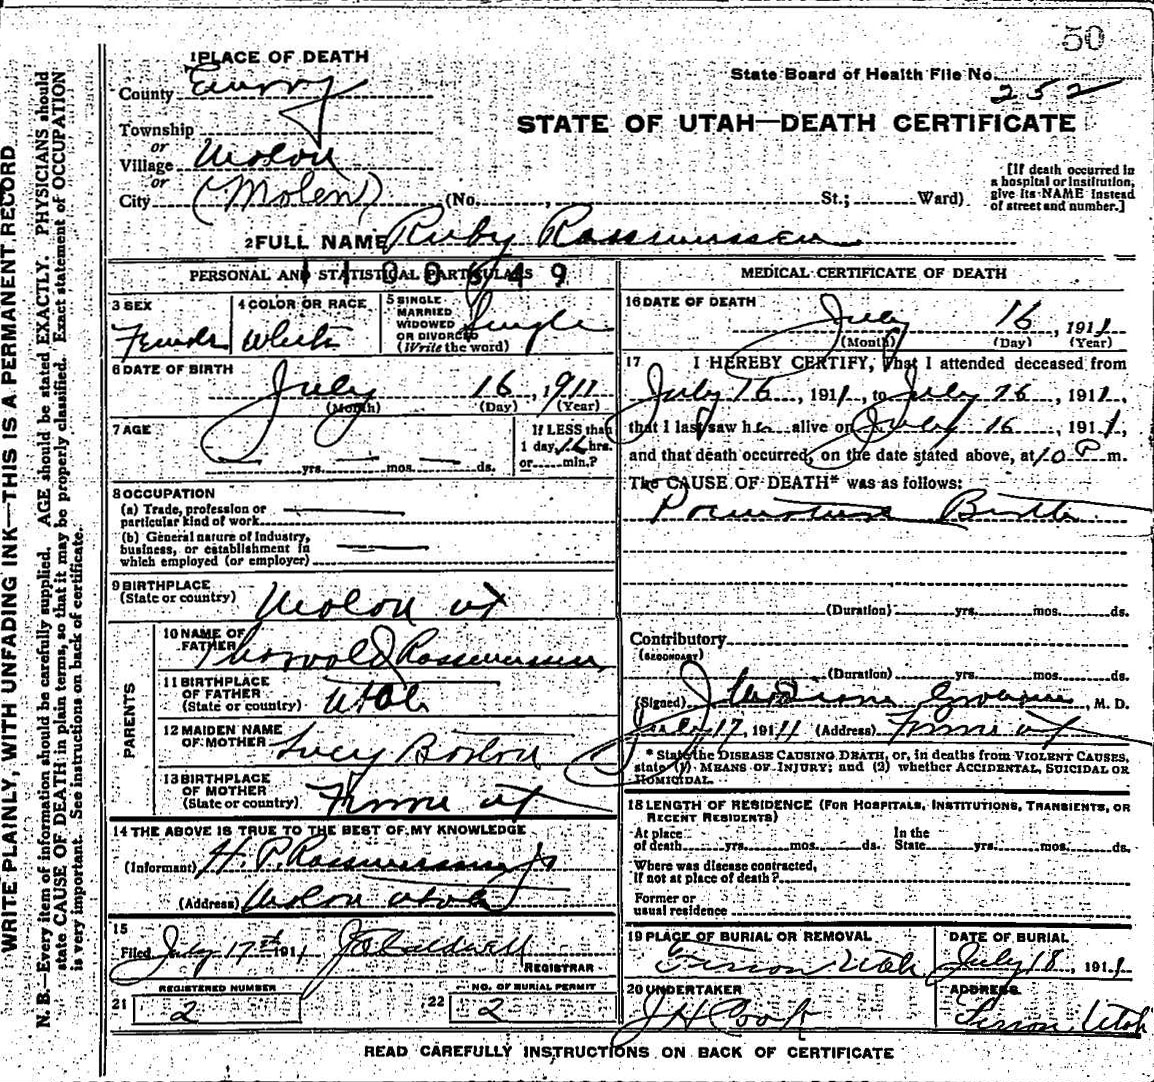 50
1 PLACE OF DEATH
State Board of Health File No. 252
County Emery
STATE OF UTAH—DEATH CERTIFICATE
Township
or
Village Molen
or
City (Molen) (No. , St.; Ward)
[If death occurred in a hospital or institution, give its NAME instead of street and number.]
2 FULL NAME Ruby Rasmussen
PERSONAL AND STATISTICAL PARTICULARS
1100649
3 SEX
Female
4 COLOR OR RACE
White
5 SINGLE
MARRIED
WIDOWED
OR DIVORCED
(Write the word)
Single
6 DATE OF BIRTH
July 16, 1911
(Month) (Day) (Year)
7 AGE
— yrs. — mos. — ds.
If LESS than
1 day, 12 hrs.
or min.?
8 OCCUPATION
(a) Trade, profession or
particular kind of work
(b) General nature of Industry,
business, or establishment in
which employed (or employer)
9 BIRTHPLACE
(State or country) Molen ut
PARENTS
10 NAME OF
FATHER Thorvald Rasmussen
11 BIRTHPLACE
OF FATHER
(State or country) Utah
12 MAIDEN NAME
OF MOTHER Lucy
13 BIRTHPLACE
OF MOTHER
(State or country) ut
14 THE ABOVE IS TRUE TO THE BEST OF MY KNOWLEDGE
(Informant) H. P. Rasmussen Jr
(Address) Molen Utah
15
Filed July 17th 1911 Caldwell
REGISTRAR
REGISTERED NUMBER
21 2
NO. OF BURIAL PERMIT
22 2
MEDICAL CERTIFICATE OF DEATH
16 DATE OF DEATH
July 16, 1911
(Month) (Day) (Year)
17 I HEREBY CERTIFY, That I attended deceased from
July 16, 1911, to July 16, 1911,
that I last saw her alive on July 16, 1911,
and that death occurred, on the date stated above, at 10 P m.
The CAUSE OF DEATH* was as follows:
Premature Birth
(Duration) yrs. mos. ds.
Contributory
(SECONDARY)
(Duration) yrs. mos. ds.
(Signed) , M. D.
July 17, 1911 (Address) ut
* State the DISEASE CAUSING DEATH, or, in deaths from VIOLENT CAUSES,
state (1) MEANS OF INJURY; and (2) whether ACCIDENTAL, SUICIDAL OR
HOMICIDAL.
18 LENGTH OF RESIDENCE (FOR HOSPITALS, INSTITUTIONS, TRANSIENTS, OR
RECENT RESIDENTS)
At place
of death yrs. mos. ds.
In the
State yrs. mos. ds.
Where was disease contracted,
if not at place of death?
Former or
usual residence
19 PLACE OF BURIAL OR REMOVAL
Ferron Utah
DATE OF BURIAL
July 18, 1911
20 UNDERTAKER
J H Cook
ADDRESS
Ferron Utah
READ CAREFULLY INSTRUCTIONS ON BACK OF CERTIFICATE
WRITE PLAINLY, WITH UNFADING INK—THIS IS A PERMANENT RECORD
N. B.—Every item of information should be carefully supplied. AGE should be stated EXACTLY. PHYSICIANS should
state CAUSE OF DEATH in plain terms, so that it may be properly classified. Exact statement of OCCUPATION
is very important. See instructions on back of certificate.